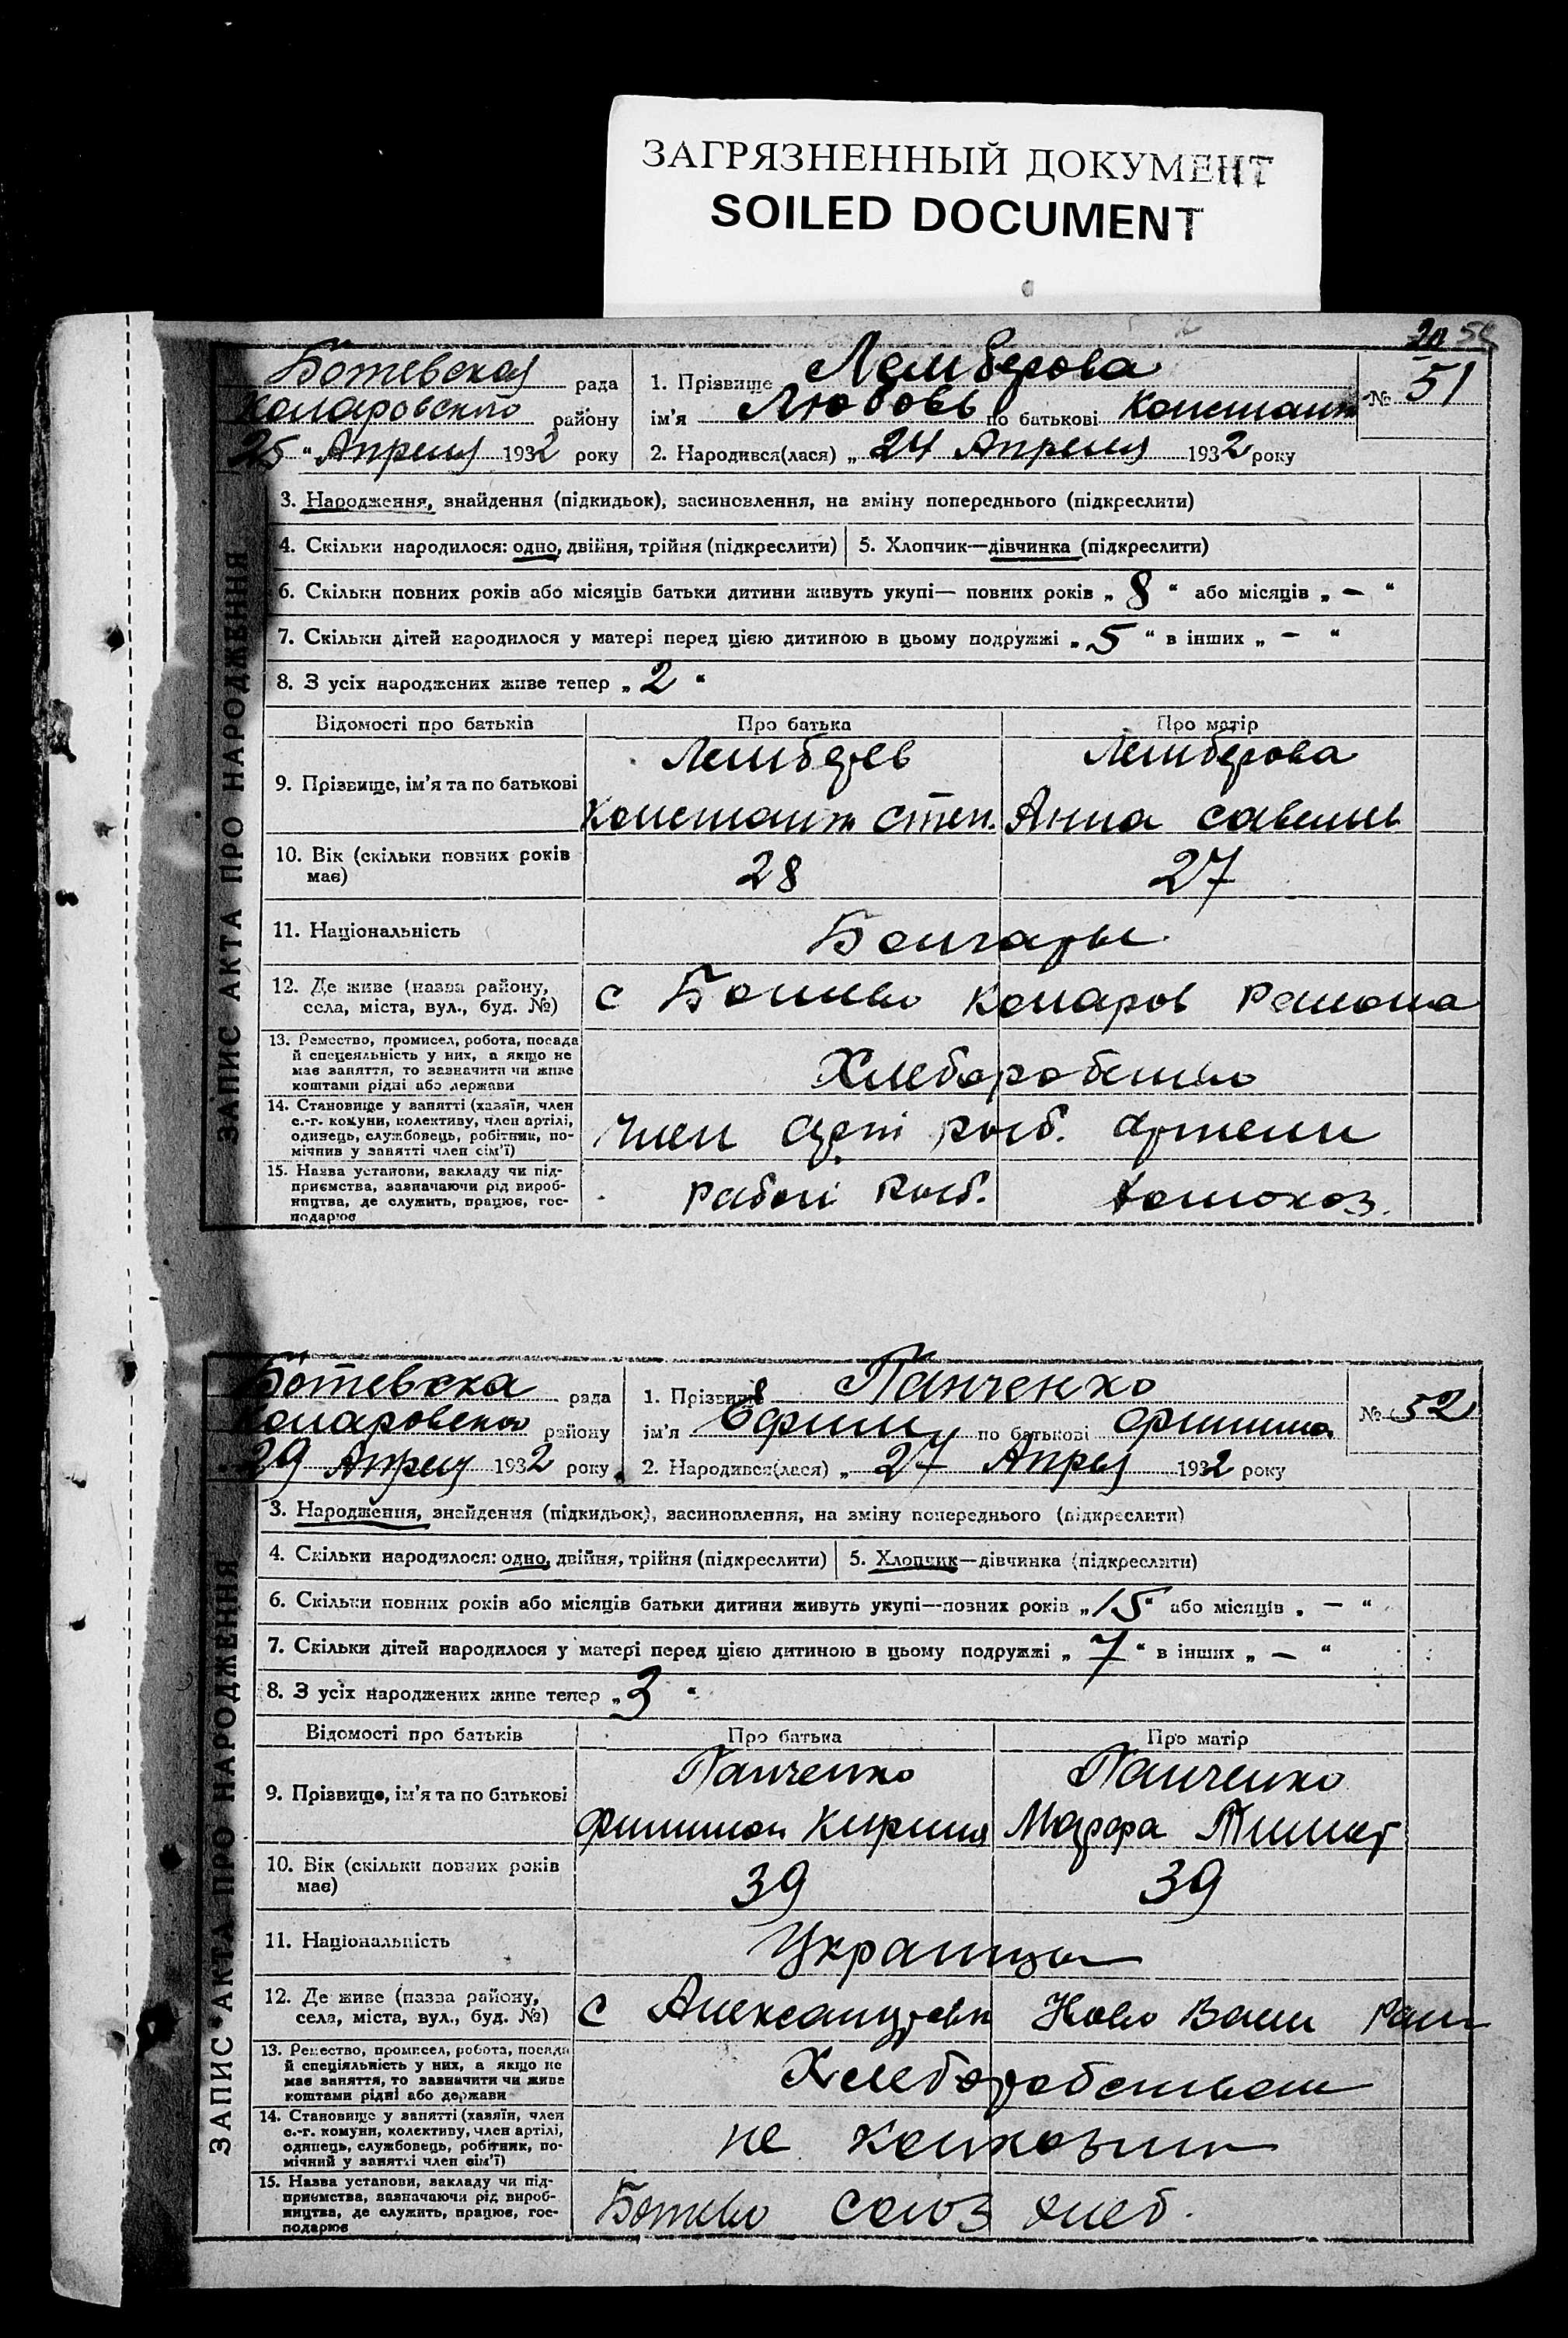 ЗАГРЯЗНЕННЫЙ ДОКУМЕНТ
SOILED DOCUMENT
Ботевская рада
Коларовского району
25 " Апреля 1932 року
1. Прізвище Лемберова
ім'я Любовь по батькові Констант
2. Народився(лася) „ 24 Апреля 1932 року
№ 51
ЗАПИС АКТА ПРО НАРОДЖЕННЯ
3. Народження, знайдення (підкидьок), засиновлення, на зміну попереднього (підкреслити)
4. Скільки народилося: одно, двійня, трійня (підкреслити)
5. Хлопчик—дівчинка (підкреслити)
6. Скільки повних років або місяців батьки дитини живуть укупі— повних років „ 8 " або місяців „ — "
7. Скільки дітей народилося у матері перед цією дитиною в цьому подружжі „ 5 " в інших „ — "
8. З усіх народжених живе тепер „ 2 "
Відомості про батьків Про батька Про матір
9. Прізвище, ім'я та по батькові
Лемберев
Констант Степ.
Лемберова
Анна Савельев
10. Вік (скільки повних років
має)
28 27
11. Національність
Болгары
12. Де живе (назва району,
села, міста, вул., буд. №)
с Ботево Коларов Района
13. Ремество, промисел, робота, посада
й спецеяльність у них, а якщо не
має заняття, то зазначити чи живе
коштами рідні або держави
Хлеборобство
14. Становище у занятті (хазяїн, член
с.-г. комуни, колективу, член артілі,
одинець, службовець, робітник, по-
мічнив у занятті член сім'ї)
член артели
15. Назва установи, закладу чи під-
приємства, зазначаючи рід вироб-
ництва, де служить, працює, гос-
подарює
Ботевска рада
Коларовского району
29 Апреля 1932 року
1. Прізвище Панченко
ім'я Ефим по батькові Филимон
2. Народився(лася) „ 27 Апреля 1932 року
№ 52
ЗАПИС АКТА ПРО НАРОДЖЕННЯ
3. Народження, знайдення (підкидьок), засиновлення, на зміну попереднього (підкреслити)
4. Скільки народилося: одно, двійня, трійня (підкреслити)
5. Хлопчик—дівчинка (підкреслити)
6. Скільки повних років або місяців батьки дитини живуть укупі—повних років „ 15 " або місяців „ — "
7. Скільки дітей народилося у матері перед цією дитиною в цьому подружжі „ 7 " в інших „ — "
8. З усіх народжених живе тепер „ 3 "
Відомості про батьків Про батька Про матір
9. Прізвище, ім'я та по батькові
Панченко
Филимон Кирилл
Панченко
Марфа
10. Вік (скільки повних років
має)
39 39
11. Національність
Украинцы
12. Де живе (назва району,
села, міста, вул., буд. №)
с Александровк Ново Васил Рай
13. Ремество, промисел, робота, посада
й спеціяльність у них, а якщо не
має заняття, то зазначити чи живе
коштами рідні або держави
Хлеборобством
14. Становище у занятті (хазяїн, член
с.-г. комуни, колективу, член артілі,
одинець, службовець, робітник, по-
мічний у занятті член сім'ї)
не колхозник
15. Назва установи, закладу чи під-
приємства, зазначаючи рід вироб-
ництва, де служить, працює, гос-
подарює
Ботево Союз хлеб.